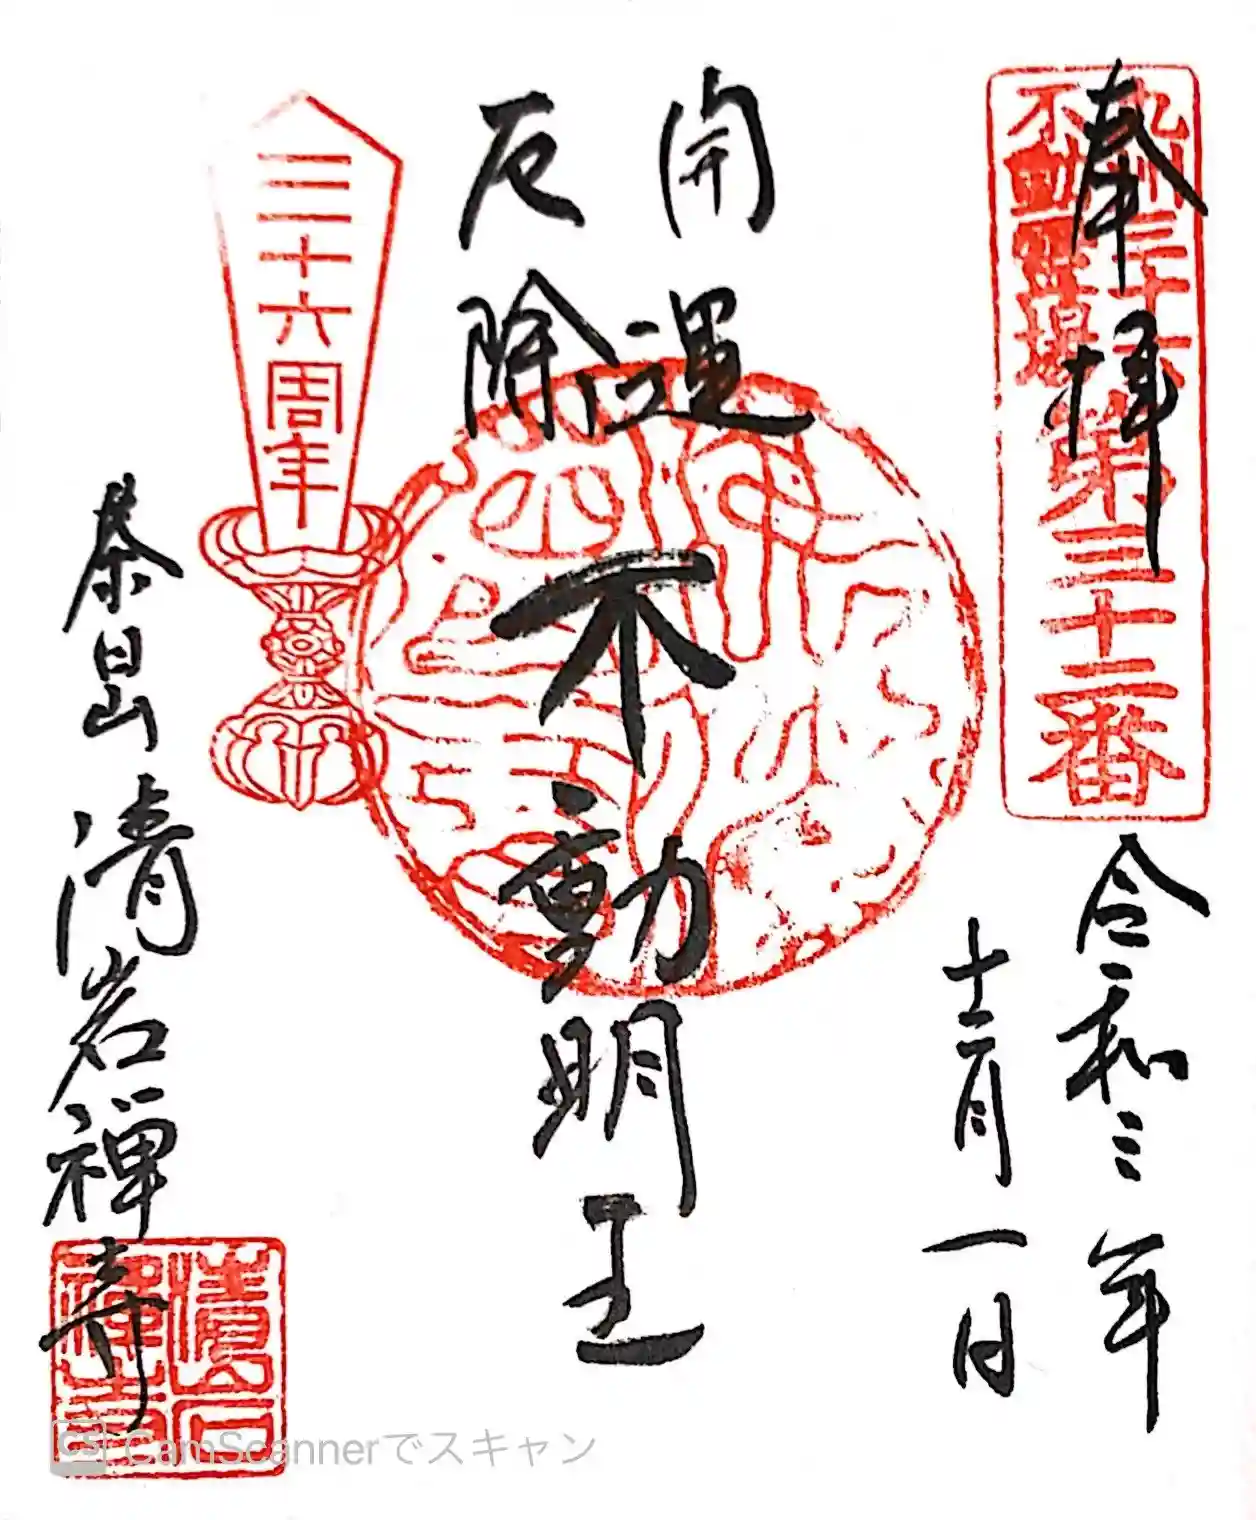 奉拝
九州三十六
不動霊場
第三十二番
令和三年
十二月一日
開運
厄除
不動明王
三十六周年
泰昌山清岩禅寺
清岩
禅寺
CS CamScannerでスキャン